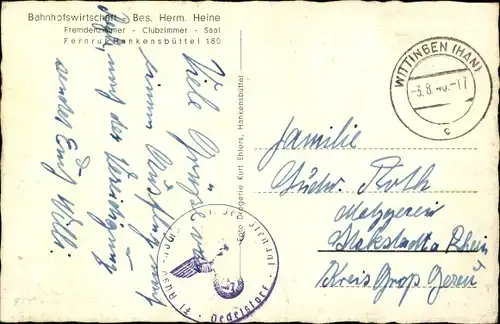 Bahnhofswirtschaft Bes. Herm. Heine
Fremdenzimmer - Clubzimmer - Saal
Fernruf Hankensbüttel 180
WITTINGEN (HAN)
-3.8.40.-17
c
Viele Grüße von
einem Ausflug nach
der Vereidigung
sendet Euch Willi.
Foto Drogerie Kurt Ehlers, Hankensbüttel
Familie
Ludw. Roth
Metzgerei
Stockstadt a Rhein
Kreis Groß Gerau